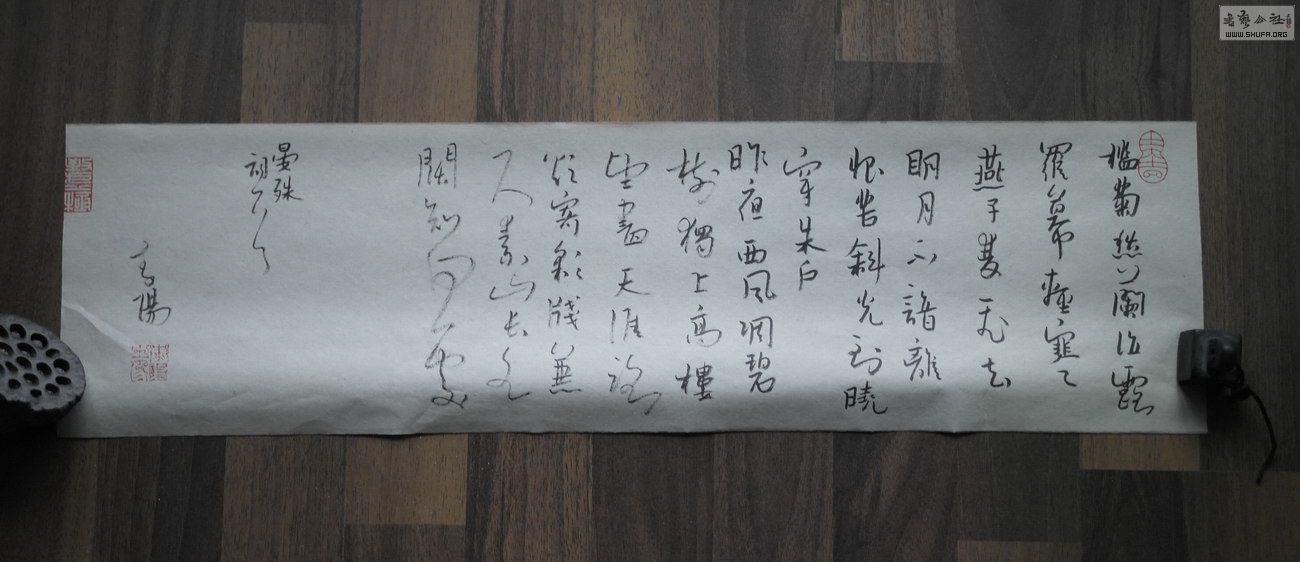 檻菊愁煙蘭泣露
羅幕輕寒
燕子雙飛去
明月不諳離
恨苦斜光到曉
穿朱戶
昨夜西風凋碧
樹獨上高樓
望盡天涯路
欲寄彩牋兼
尺素山長水
闊知何處
晏殊
詞
陽
書藝公社
WWW.SHUFA.ORG